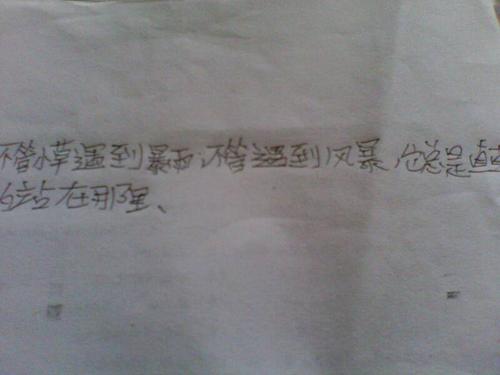 不管小草遇到暴雨,不管遇到风暴,它总是直直
的站在那里、